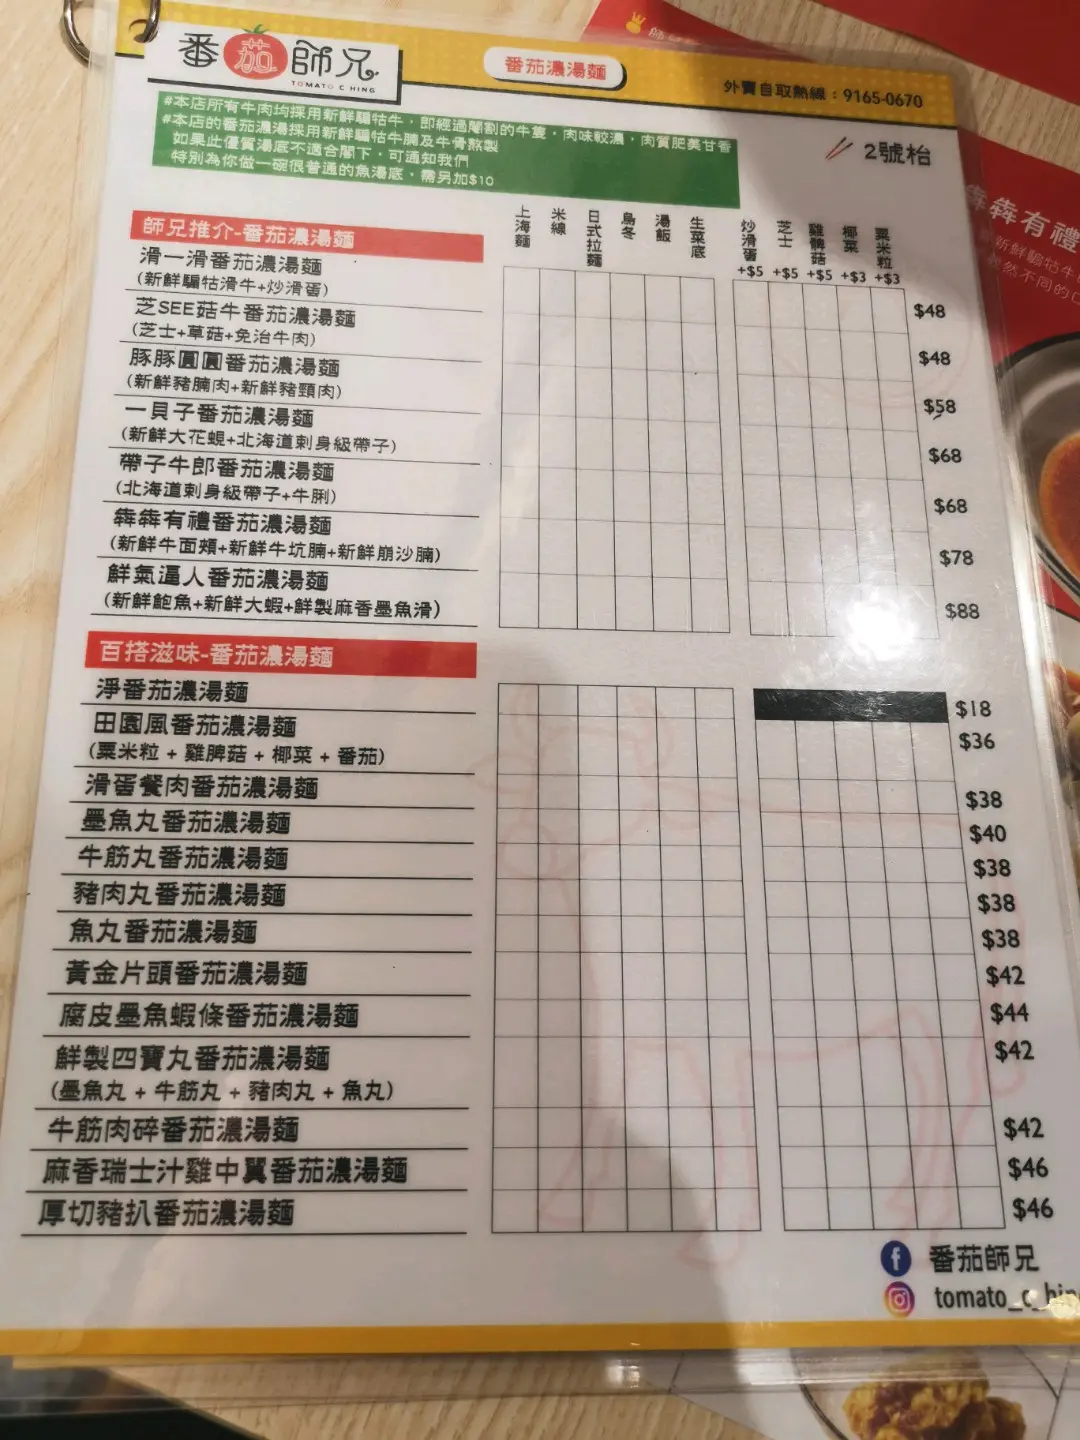 番茄師兄
TOMATO C HING
番茄濃湯麵
外賣自取熱線：9165-0670
#本店所有牛肉均採用新鮮騸牯牛，即經過閹割的牛隻，肉味較濃，肉質肥美甘香
#本店的番茄濃湯採用新鮮騸牯牛腩及牛骨熬製
如果此優質湯底不適合閣下，可通知我們
特別為你做一碗很普通的魚湯底，需另加$10
2號枱
師兄推介-番茄濃湯麵
上海麵 米線 日式拉麵 烏冬 湯飯 生菜底 炒滑蛋 芝士 雞髀菇 椰菜 粟米粒
+$5 +$5 +$5 +$3 +$3
滑一滑番茄濃湯麵
(新鮮騸牯滑牛+炒滑蛋) $48
芝SEE菇牛番茄濃湯麵
(芝士+草菇+免治牛肉) $48
豚豚圓圓番茄濃湯麵
(新鮮豬腩肉+新鮮豬頸肉) $58
一貝子番茄濃湯麵
(新鮮大花蜆+北海道刺身級帶子) $68
帶子牛郎番茄濃湯麵
(北海道刺身級帶子+牛脷) $68
犇犇有禮番茄濃湯麵
(新鮮牛面頰+新鮮牛坑腩+新鮮崩沙腩) $78
鮮氣逼人番茄濃湯麵
(新鮮鮑魚+新鮮大蝦+鮮製麻香墨魚滑) $88
百搭滋味-番茄濃湯麵
淨番茄濃湯麵 $18
田園風番茄濃湯麵 $36
(粟米粒 + 雞髀菇 + 椰菜 + 番茄)
滑蛋餐肉番茄濃湯麵 $38
墨魚丸番茄濃湯麵 $40
牛筋丸番茄濃湯麵 $38
豬肉丸番茄濃湯麵 $38
魚丸番茄濃湯麵 $38
黃金片頭番茄濃湯麵 $42
腐皮墨魚蝦條番茄濃湯麵 $44
鮮製四寶丸番茄濃湯麵 $42
(墨魚丸 + 牛筋丸 + 豬肉丸 + 魚丸)
牛筋肉碎番茄濃湯麵 $42
麻香瑞士汁雞中翼番茄濃湯麵 $46
厚切豬扒番茄濃湯麵 $46
番茄師兄
tomato_c_hing
犇犇有禮
新鮮騸牯牛
然不同的口